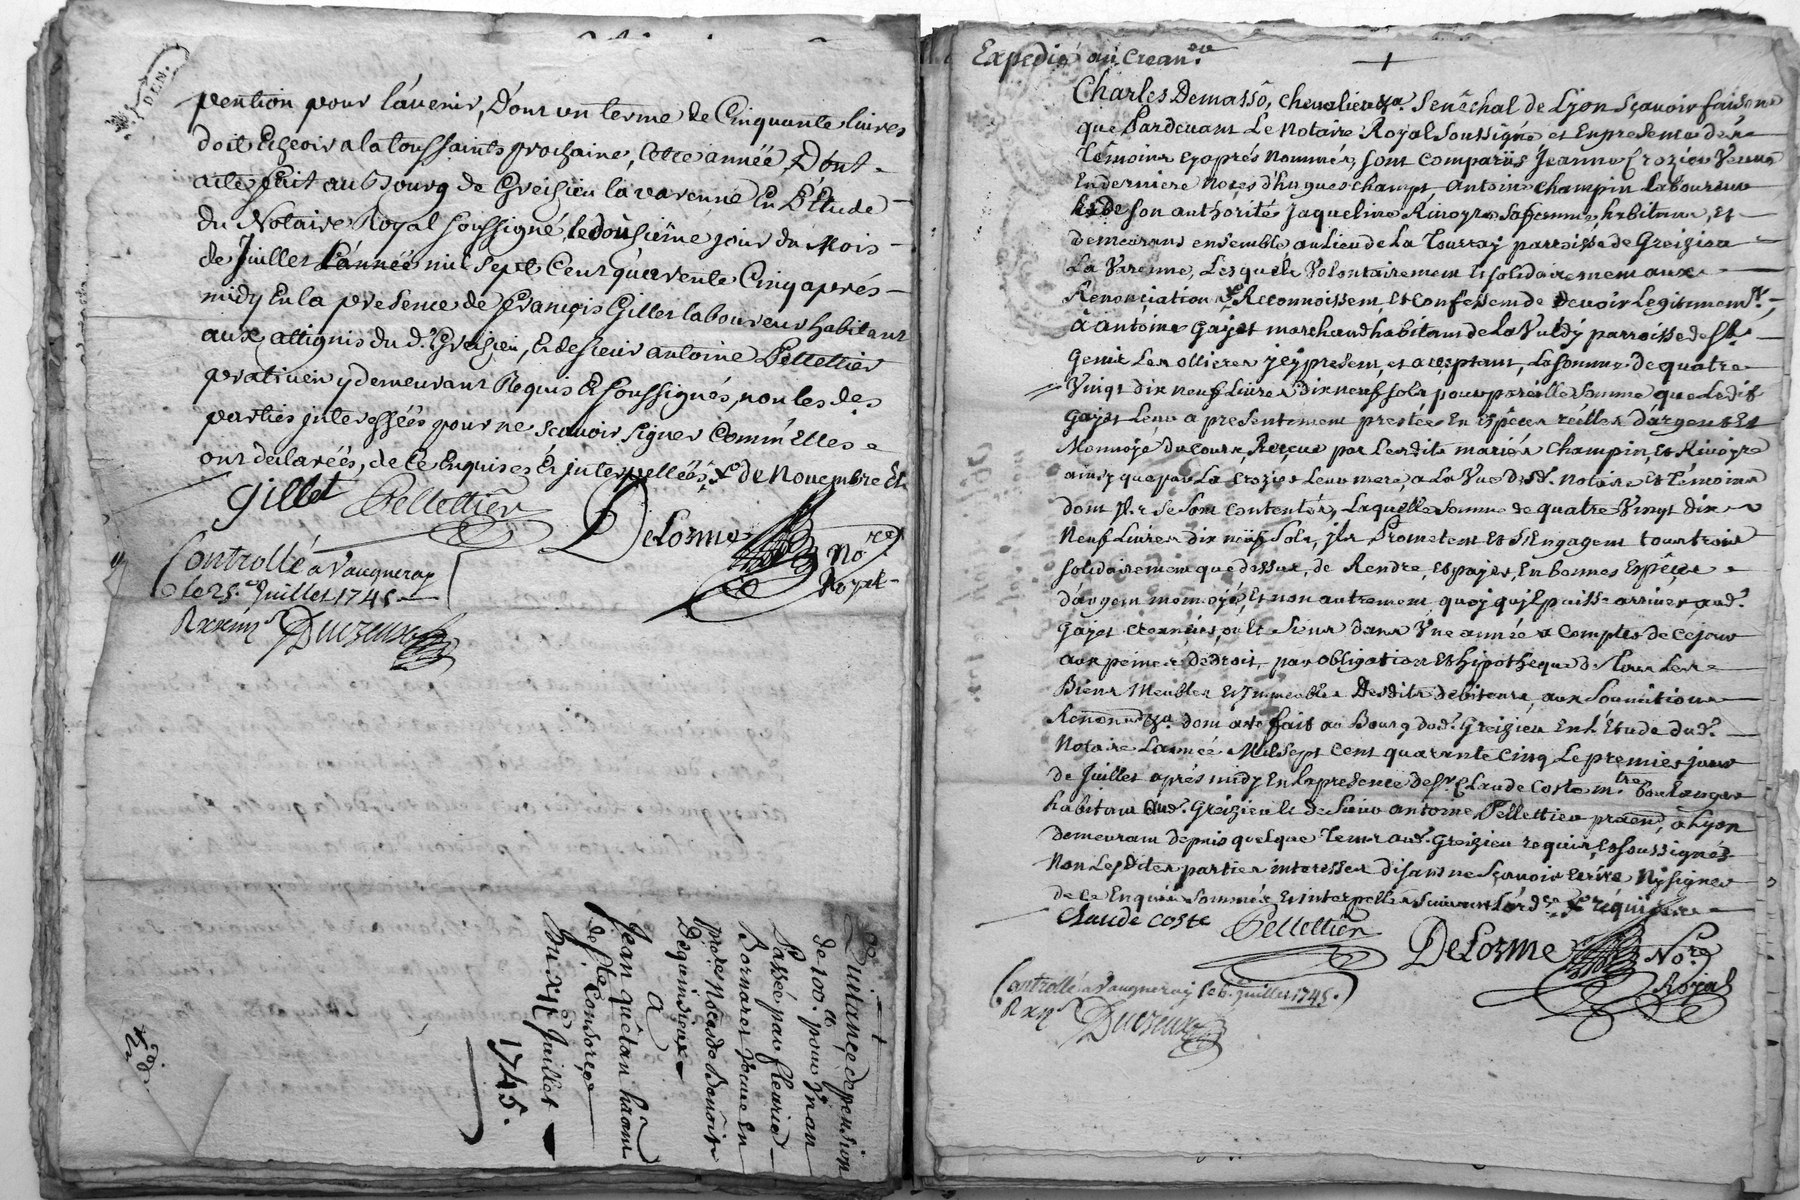 DEN.
vention pour l'avenir, Dont un terme de Cinquante livres
doit Echeoir a la toussaints prochaine, cette année, Dont
acte fait au Bourg de Greisieu la varenne En L'Etude
du Notaire Royal soussigné, le dousième jour du Mois
de Juillet L'année mil sept Cent quarente Cinq aprés
midy En la presence de françois Gillet laboureur habitant
aux attignis du d. Greisieu, Et de sieur antoine Pellettier
praticien y demeurant Requis Et soussignés, non les des
parties interessées pour ne scavoir signer Comm'Elles
ont declarées, de ce Enquises Et interpellées, de Novembre Et
Gillet Pellettier DeLorme No.re Royal
Controllé a Vaugneray
le 25.e Juillet 1745
Quittance de pension
de 100.# pour Un an
Passée par fleurie
Bornaret veuve En
pre.res Noces de Benoist
Dequindrieux
A
Jean quêtan habant
de ste. Consorce
Du XII.e Juillet
1745.
Expedié au Crean.er
Charles Demasso, chevalier &a. senéchal de Lyon sçavoir faisons
que Pardevant Le Notaire Royal soussigné et En presence des
Témoins cy aprés Nommés, sont comparûs Jeanne Crozier Veuve
En derniere Noces d'hugues champt, antoine champin Laboureur
& de son authorité Jaqueline Rivoyre sa femme habitans, Et
demeurans ensemble au Lieu de La Tourray parroisse de Greizieu
La Varenne, Lesquels Volontairement Et solidairement aux
Renonciation &a Reconnoissent, Et Confessent de devoir Legitimem.t,
à antoine Gayet marchand habitant de La Valdy parroisse de St.
Genis Les ollieres jcy present, et acceptant, La somme de quatre
Vingt dix neuf Livres dix neuf sols pour pareille somme que Ledit
Gayet Leur a presentement prestée En Espêces réelles d'argent Et
Monnoye du cours Reçeue par Lesdits mariés Champin, Et Rivoyre
ainsy que par La Crozier Leur mere, a La Vüe dud. Notaire Et Témoins
dont Ils se sont contentés, Laquelle somme de quatre Vingt dix
Neuf Livres dix neuf Sols, jls Prometent Et s'Engagent tous trois
solidairement que dessus, de Rendre, Et payer, En bonnes Espêces
d'argent monnoyé, Et non autrement, quoy qu'jl puisse arriver, aud.
Gayet creancier, ou le sieur dans Vne année a compter de ce jour
aux peines de droit, par obligation Et hipotheque de tous Les
Biens Meubles Et Immeubles Desdits debiteurs, aux soumitions
Renon.ons &a. dont acte fait au Bourg dud. Greizieu En L'Etude dud.
Notaire L'année Mil sept Cent quarante Cinq Le premier jour
de Juillet aprés midy En La presence de s.r Claude Coste m.tre boulanger
habitant aud. Greizieu Et de Sieur antoine Pellettier praen. à Lyon
demeurant depuis quelque Tems aud. Greizieu requis, Et soussignés
Non Lesdites parties interessées disans ne Sçavoir Ecrire Ny signer
de ce Enquis Sommés, Et interpellés Suivant L'ord.ce
Claude coste Pellettier DeLorme No.re Royal
Controllé a Vaugneray le 6. Juillet 1745.